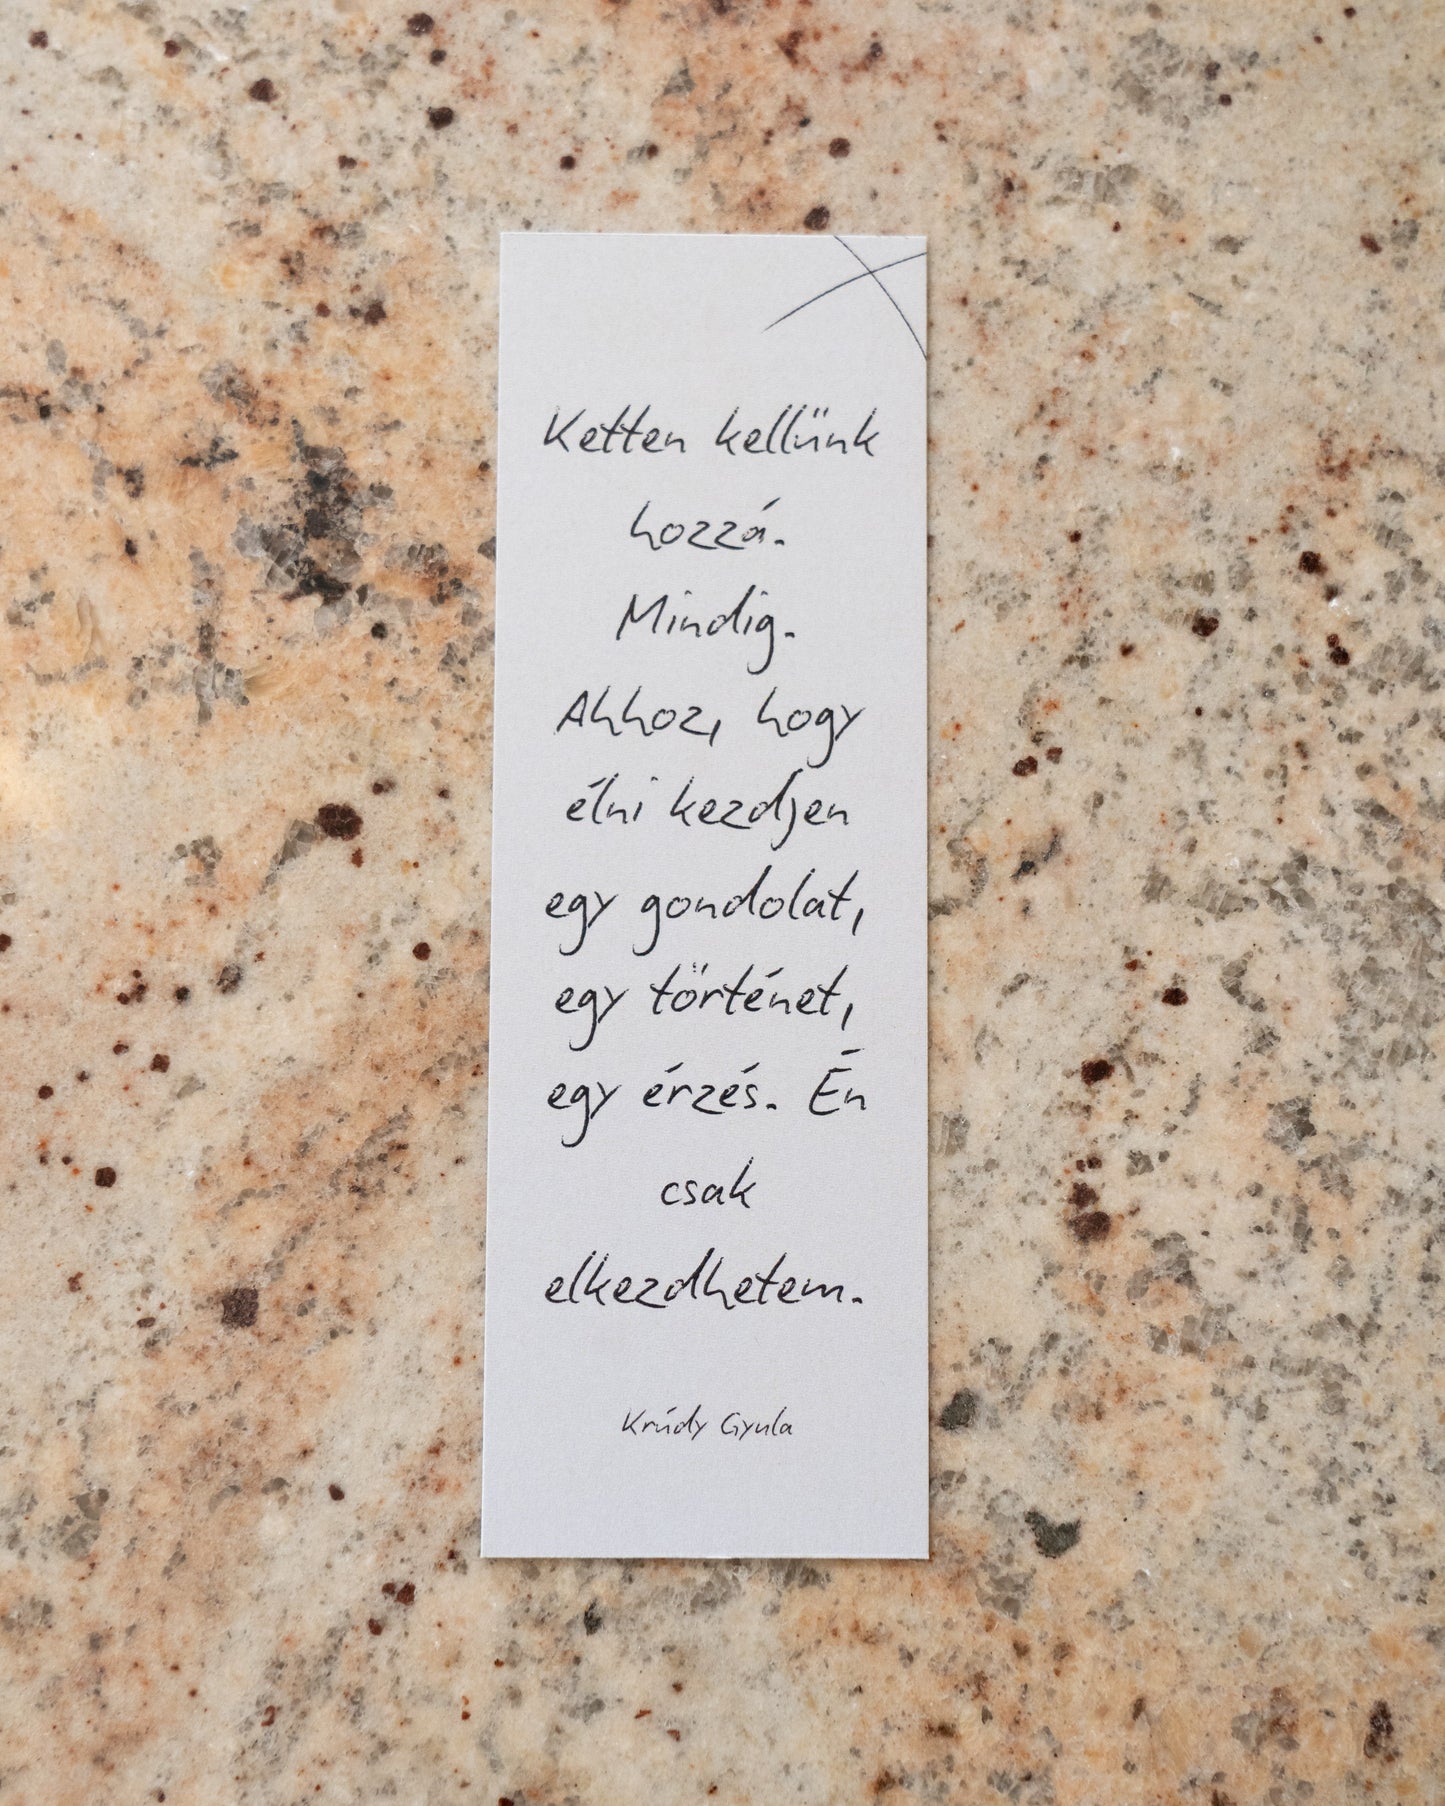 Ketten kellünk
hozzá.
Mindig.
Ahhoz, hogy
élni kezdjen
egy gondolat,
egy történet,
egy érzés. Én
csak
elkezdhetem.
Krúdy Gyula